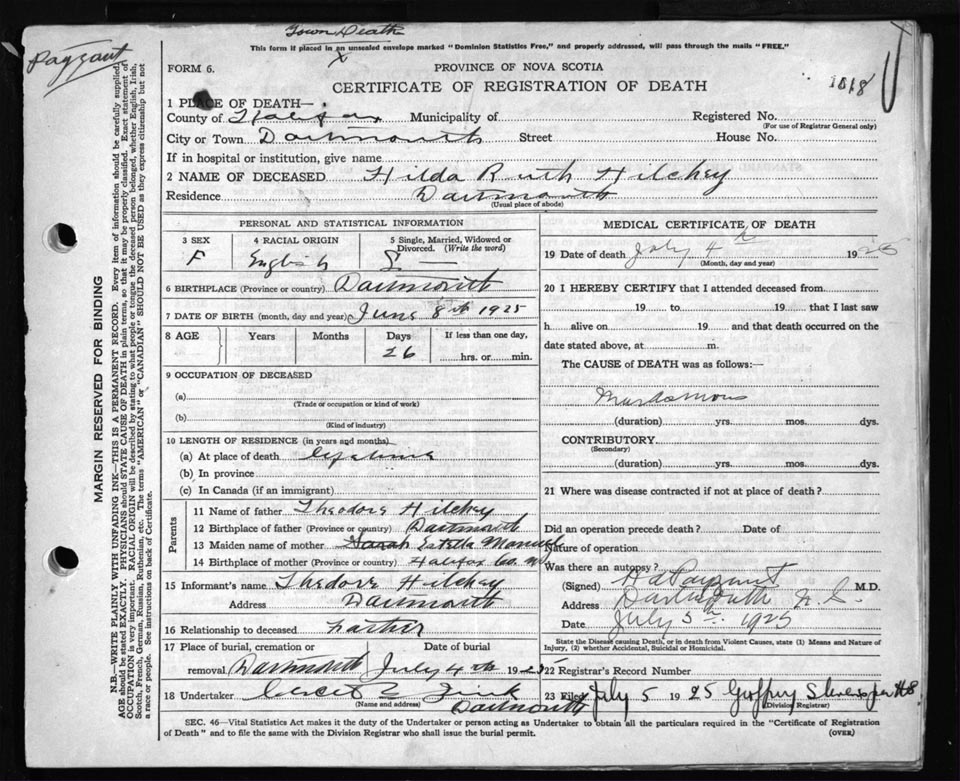 Town Death
Payzant
This form if placed in an unsealed envelope marked "Dominion Statistics Free," and properly addressed, will pass through the mails "FREE."
X
FORM 6.
PROVINCE OF NOVA SCOTIA
CERTIFICATE OF REGISTRATION OF DEATH
1818
1 PLACE OF DEATH—
County of Halifax Municipality of Registered No.
(For use of Registrar General only)
City or Town Dartmouth Street House No.
If in hospital or institution, give name
2 NAME OF DECEASED Hilda Ruth Hilchey
Residence Dartmouth
(Usual place of abode)
MARGIN RESERVED FOR BINDING
N.B.—WRITE PLAINLY WITH UNFADING INK—THIS IS A PERMANENT RECORD. Every item of information should be carefully supplied.
AGE should be stated EXACTLY. PHYSICIANS should STATE CAUSE OF DEATH in plain terms, so that it may be properly classified. Exact statement of
OCCUPATION is very important. RACIAL ORIGIN will be described by stating to what people or tongue the deceased person belonged, whether English, Irish,
Scotch, French, German, Russian, Ruthenian, etc. The terms "AMERICAN" or "CANADIAN" SHOULD NOT BE USED as they express citizenship but not
a race or people. See instructions on back of Certificate.
PERSONAL AND STATISTICAL INFORMATION
3 SEX
F
4 RACIAL ORIGIN
English
5 Single, Married, Widowed or
Divorced. (Write the word)
S —
6 BIRTHPLACE (Province or country) Dartmouth
7 DATE OF BIRTH (month, day and year) June 8th 1925
8 AGE Years Months Days If less than one day,
26
hrs. or min.
9 OCCUPATION OF DECEASED
(a)
(Trade or occupation or kind of work)
(b)
(Kind of industry)
10 LENGTH OF RESIDENCE (in years and months)
(a) At place of death lifetime
(b) In province
(c) In Canada (if an immigrant)
Parents
11 Name of father Theodore Hilchey
12 Birthplace of father (Province or country) Dartmouth
13 Maiden name of mother Sarah Estella Manuel
14 Birthplace of mother (Province or country) Halifax Co. N.S.
15 Informant's name Thedore Hilchey
Address Dartmouth
16 Relationship to deceased Farther
17 Place of burial, cremation or Date of burial
removal Dartmouth July 4th 1925
18 Undertaker
(Name and address)
Dartmouth
MEDICAL CERTIFICATE OF DEATH
19 Date of death July 4th 1925
(Month, day and year)
20 I HEREBY CERTIFY that I attended deceased from
19 to 19 that I last saw
h alive on 19 and that death occurred on the
date stated above, at m.
The CAUSE OF DEATH was as follows:—
Marasmous
(duration) yrs. mos. dys.
CONTRIBUTORY
(Secondary)
(duration) yrs. mos. dys.
21 Where was disease contracted if not at place of death?
Did an operation precede death? Date of
Nature of operation
Was there an autopsy?
(Signed) H A Payzant M.D.
Address Dartmouth N.S.
Date July 5th 1925
State the Disease causing Death, or in death from Violent Causes, state (1) Means and Nature of
Injury, (2) whether Accidental, Suicidal or Homicidal.
22 Registrar's Record Number
23 Filed July 5 1925 Geoffrey Stevens per
(Division Registrar)
SEC. 46—Vital Statistics Act makes it the duty of the Undertaker or person acting as Undertaker to obtain all the particulars required in the "Certificate of Registration
of Death" and to file the same with the Division Registrar who shall issue the burial permit.
(OVER)